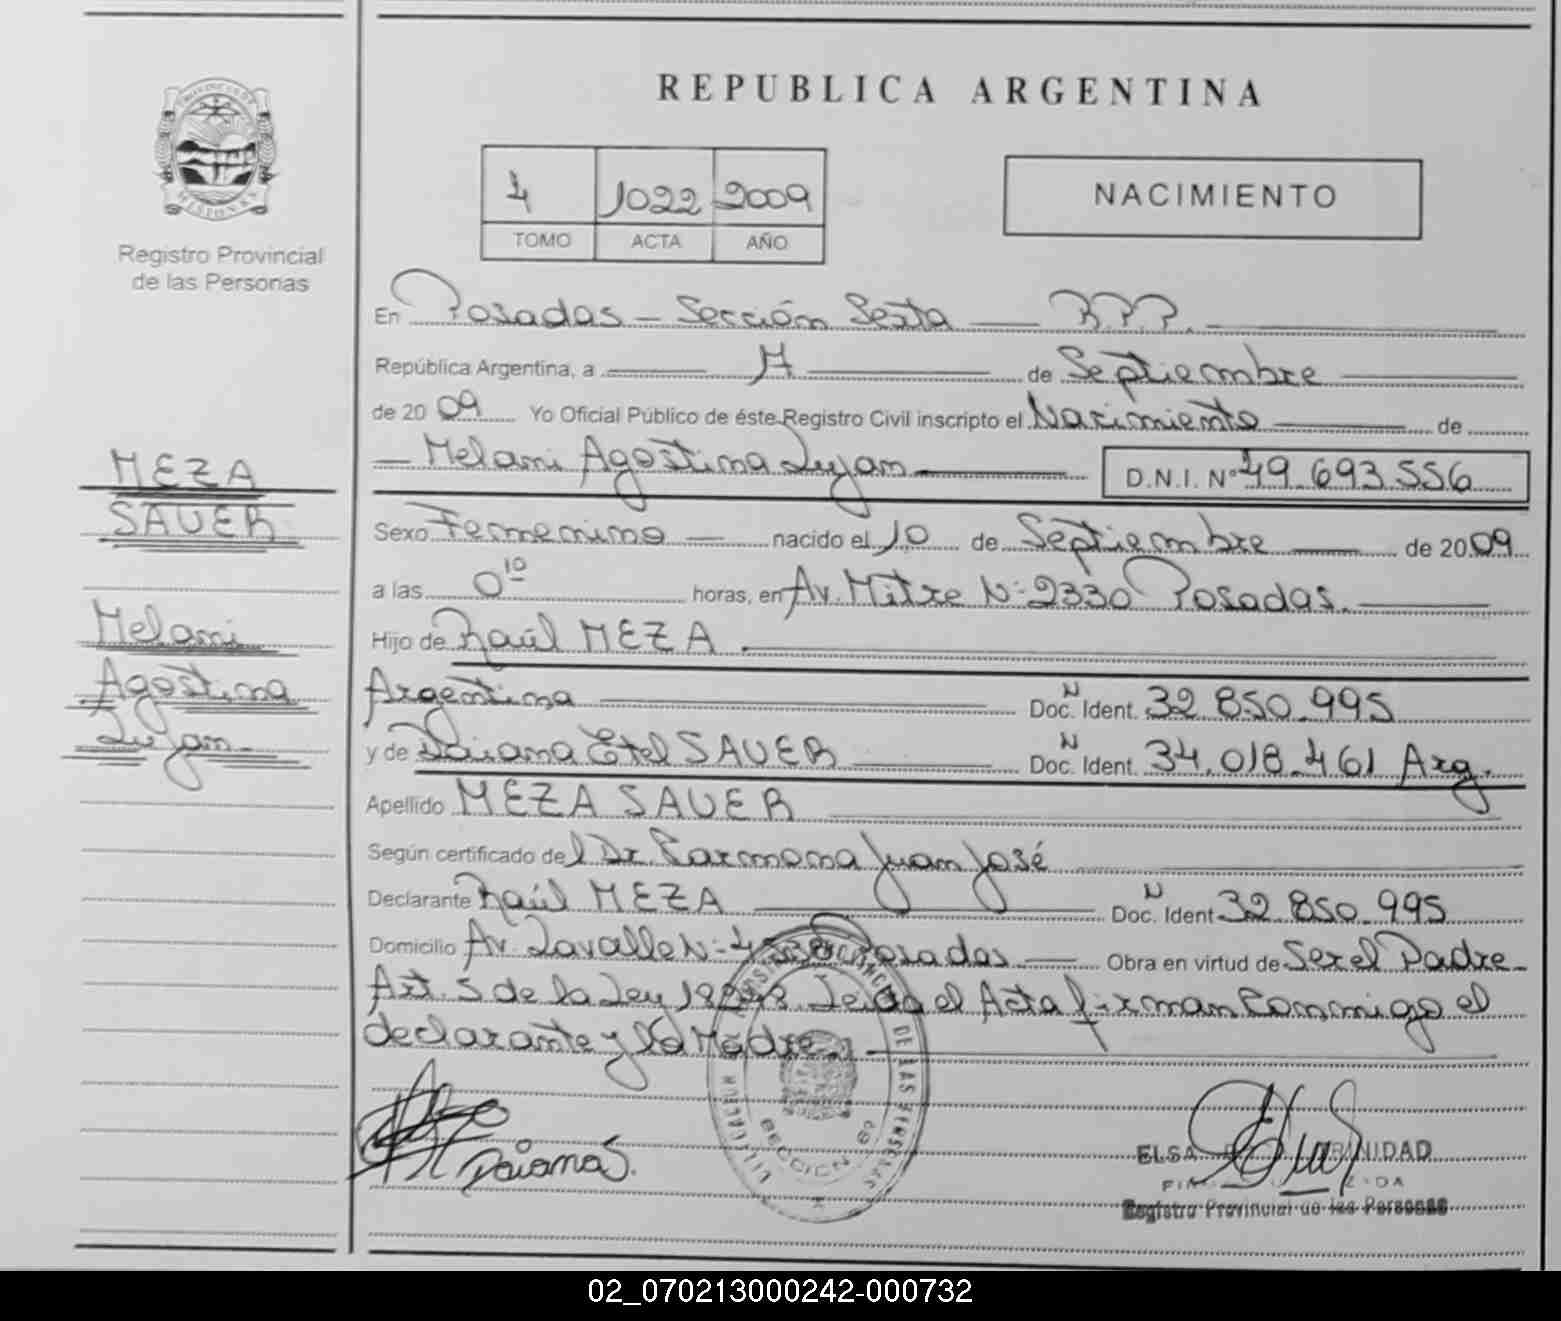 REPUBLICA ARGENTINA
PROVINCIA DE
MISIONES
Registro Provincial
de las Personas
4 1022 2009
TOMO ACTA AÑO
NACIMIENTO
En Posadas - Sección Sexta — R.P.P. —
República Argentina, a — 11 — de Septiembre —
de 20 09 Yo Oficial Público de éste Registro Civil inscripto el Nacimiento — de
— Melani Agostina Lujan — D.N.I. Nº 49.693.556
MEZA
SAUER
Melani
Agostina
Lujan
Sexo Femenino — nacido el 10 de Septiembre — de 20 09
a las 0 10 horas, en Av. Mitre Nº 2330 Posadas. —
Hijo de Raúl MEZA —
Argentina — Doc. Ident. N 32.850.995
y de Daiana Etel SAUER — Doc. Ident. N 34.018.461 Arg.
Apellido MEZA SAUER —
Según certificado del Dr. Carmona Juan José
Declarante Raúl MEZA — Doc. Ident N 32.850.995
Domicilio Av. Lavalle Nº Posadas — Obra en virtud de Ser el Padre
Art. 5 de la Ley Leida el Acta firman Conmigo el
declarante y la Madre. —
Daiana S.
DE LAS PERSONAS
SECCION 6ª
ELSA TRINIDAD
Registro Provincial de las Personas
02_070213000242-000732